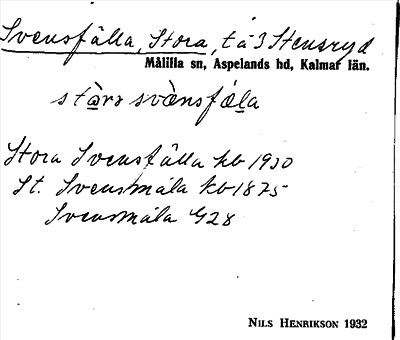 Svensfälla, Stora, t å 3 Stensryd
Målilla sn, Aspelands hd, Kalmar län.
stårə svènsfäla
Stora Svensfälla kb 1930
St. Svensmåla kb 1875
Svensmåla G28
NILS HENRIKSON 1932